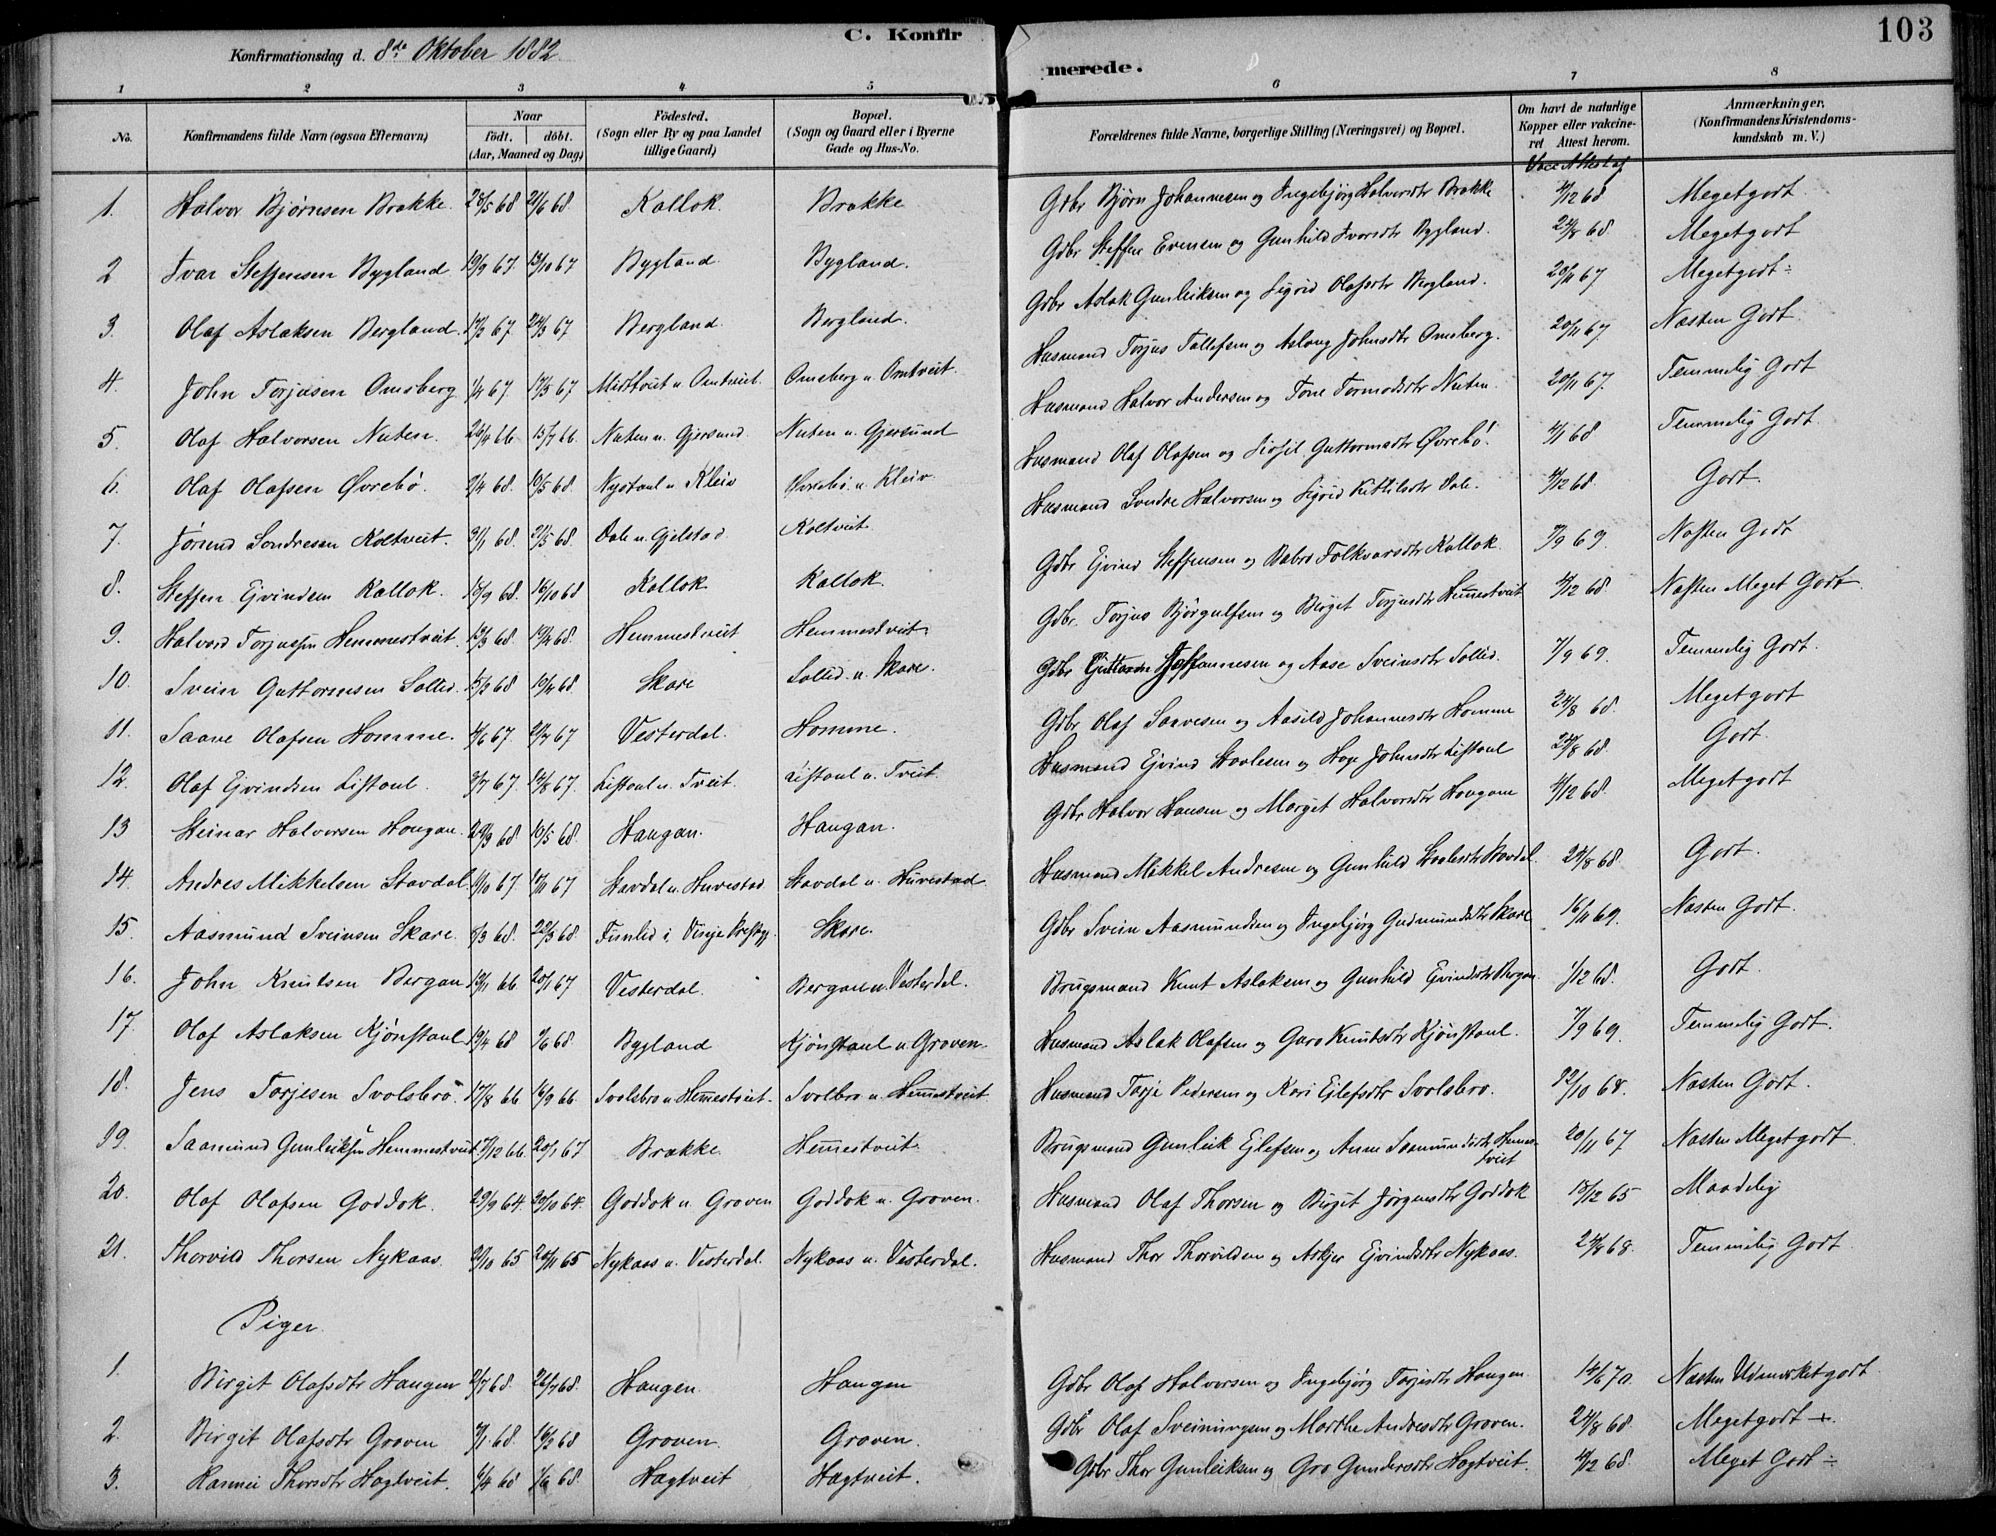 103
C. Konfirmerede.
Konfirmationsdag d. 8de Oktober 1882.
1 2 3 4 5 6 7 8
No.
Konfirmandens fulde Navn (ogsaa Efternavn)
Naar
födt. döbt.
(Aar, Maaned og Dag)
Födested.
(Sogn eller By og paa Landet
tillige Gaard)
Bopæl.
(Sogn og Gaard eller i Byerne
Gade og Hus-No.
Forældrenes fulde Navne, borgerlige Stilling (Næringsvei) og Bopæl.
Om havt de naturlige
Kopper eller vakcine-
ret Attest herom.
Anmærkninger,
(Konfirmandens Kristendoms-
kundskab m. V.)
Vacc Attest af
1. Halvor Bjørnsen Brokke 21/6 68 Kallok. Brokke Gdbr Bjørn Johannesen og Ingebjørg Halvorsdtr Brokke 4/12 68 Megetgodt
2 Ivar Steffensen Bygland 19/9 67. 13/10 67 Bygland Bygland. Gdbr Steffen Evensen og Gunhild Ivarsdtr Bygland. 24/8 68. Megetgodt
3. Olaf Aslaksen Bergland 24/3 67 Bergland. Bergland. Gdbr Aslak Gunleiksen og Sigrid Olafsdtr Bergland. 20/11 67 Megetgodt÷
4. John Torjusen Omsberg 1/4 67. Midtveit u. Omtveit. Omsberg u. Omtveit. Husmand Torjus Tollefsen og Aslaug Johnsdtr Omsberg. 20/11 67. Næsten Godt
5. Olaf Halvorsen Nuten. 15/7 66. Nuten u. Gjersund. Nuten u. Gjersund Husmand Halvor Andersen og Tone Tormodsdtr Nuten. 20/11 67. Temmelig Godt
6. Olaf Olafsen Øvrebø. 10/5 68. Nystaul u. Kleiv Øvrebø u. Kleiv Husmand Olaf Olafsen og Sissil Guttormsdtr Øvrebø. 4/1 68 Temmelig Godt.
7. Jørund Sondresen Koltveit. 31/1 68. 21/5 68. Dale u. Gjelstad Koltveit. Husmand Sondre Halvorsen og Sigrid Kittilsdtr Dale. 4/12 68. Godt.
8. Steffen Ejvindsen Kallok. 16/10 68 Kallok Kallok. Gdbr Ejvind Steffensen og Folkvarsdtr Kallok. 7/9 69. Næsten Godt
9. Halvord Torjussen Hemmestveit. Hemmestveit Hemmestveit. Gdbr. Torjus Bjørgulfsen og Birgit Torjusdtr Hemmestveit 4/12 68. Næsten Meget Godt.
10. Svein Guttormsen Solled. Skare Solled u. Skare. Gdbr Guttorm Johannesen og Aase Sveinsdtr Solled. 7/9 69. Temmelig Godt.
11. Saave Olafsen Homme. 4/6 67. 21/7 67 Vesterdal. Homme. Gdbr Olaf Saavesen og Aasild Johannesdtr Homme 24/8 68. Megetgodt
12. Olaf Ejvindsen Listaul. 3/7 67. Listaul u. Tveit. Listaul u. Tveit. Husmand Ejvind Stavlesen og Johnsdtr Listaul 24/8 68. Godt.
13 Steinar Halvorsen Hougan. 29/3 68 10/5 68. Haugan. Haugan. Gdbr Halvor Hansen og Margit Halvorsdtr Hougane 4/12 68. Megetgodt
14. Andres Mikkelsen Stavdal. 17/11 67 Stavdal u. Huvestad Stavdal u. Huvestad Husmand Mikkel Andresen og Gunhild Stavdal 24/8 68. Godt.
15. Aasmund Sveinsen Skare. 22/3 68. i Vinje Skare. Gdbr Svein Aasmundsen og Ingebjørg Gudmundsdtr Skare 16/11 69. Næsten Godt.
16. John Knutsen Bergan 19/11 66 20/1 67 Vesterdal. Bergan u. Vesterdal. Brugsmand Knut Aslaksen og Gunhild Ejvindsdtr Bergan. 1/12 68. Godt.
17. Olaf Aslaksen Kjønstaul 19/4 68 1/6 68. Bygland Kjønstaul u. Groven. Husmand Aslak Olafsen og Guro Knutsdtr Kjønstaul. 7/9 69. Temmelig Godt.
18. Jens Torjesen Svolsbro. 17/8 66 16/9 66. Svolsbro u. Hemestveit. Svolbro u. Hemestveit Husmand Torje Pedersen og Kari Ejlefsdtr Svolsbro. 12/10 68. Næsten Godt.
19. Saamund Gunleiksen Hemmestveit 17/12 66. 20/1 67 Brokke. Hemestveit. Brugsmand Gunleik Ejlefsen og Anne Saamundsdtr Hemes-
tveit 20/11 67 Næsten Megetgodt.
20. Olaf Olafsen Goddok. 29/9 64. 29/10 64. Goddok u. Groven Goddok u. Groven. Husmand Olaf Thorsen og Birgit Jørgensdtr Goddok 18/12 65 Maadelig
21. Thorvild Thorsen Nykaas. 20/10 65 20/11 65 Nykaas u. Vesterdal. Nykaas u. Vesterdal. Husmand Thor Thorvildsen og Askjer Ejvindsdtr Nykaas. 24/8 68. Temmelig Godt
Piger.
1. Birgit Olafsdtr Haugen 2/7 68. 26/7 68. Haugen. Haugen Gdbr Olaf Halvorsen og Ingebjørg Torjusdtr Haugen. 14/6 70. Næsten Udmerketgodt
2. Birgit Olafsdtr Groven 7/1 68. Groven. Groven. Gdbr Olaf Sveinungsen og Marthe Andresdtr Groven. 24/8 68. Megetgodt +.
3. Thorsdtr Hogtveit. 1/6 68. Hogtveit Hogtveit. Gdbr Thor Gunleiksen og Gro Gundersdtr Hogtveit. 4/12 68. Meget Godt ÷